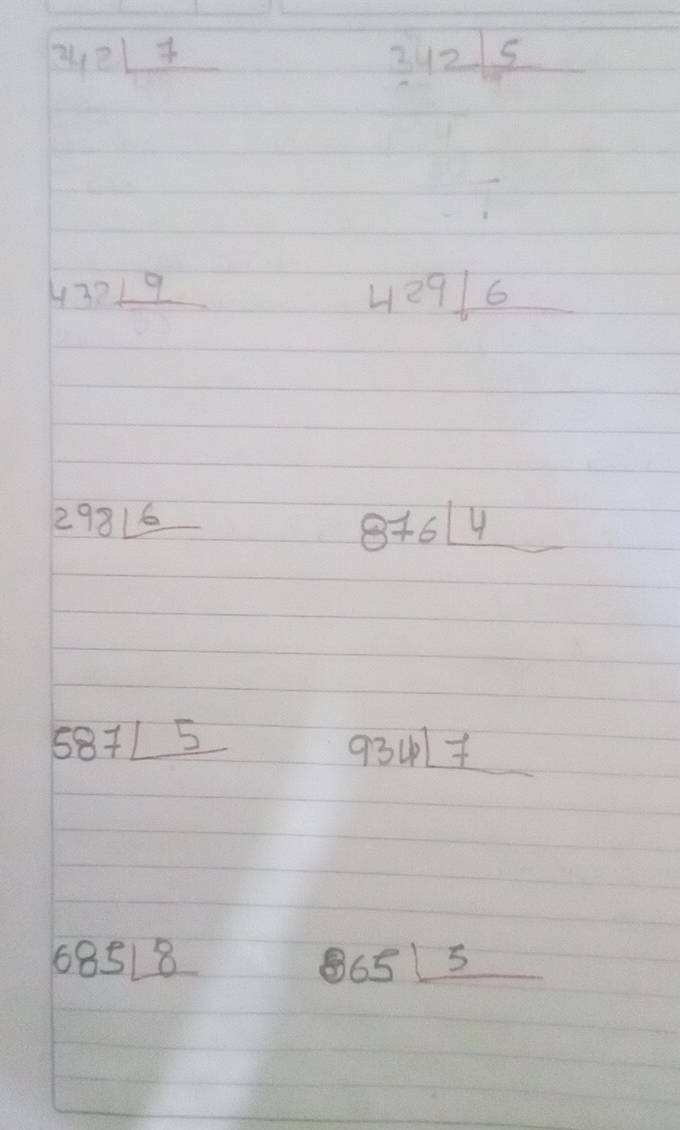 342 7 342 5
432 9 429 6
298 6 876 4
587 5 934 7
685 8 865 5